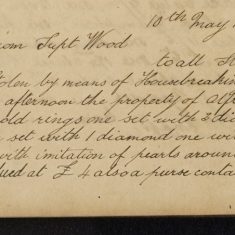 10th May
from Supt Wood
to all St
Stolen by means of Housebreaking
afternoon the property of Alfr
Gold rings one set with 2 di
set with 1 diamond one wi
with imitation of pearls aroun
ued at £4 also a purse conta